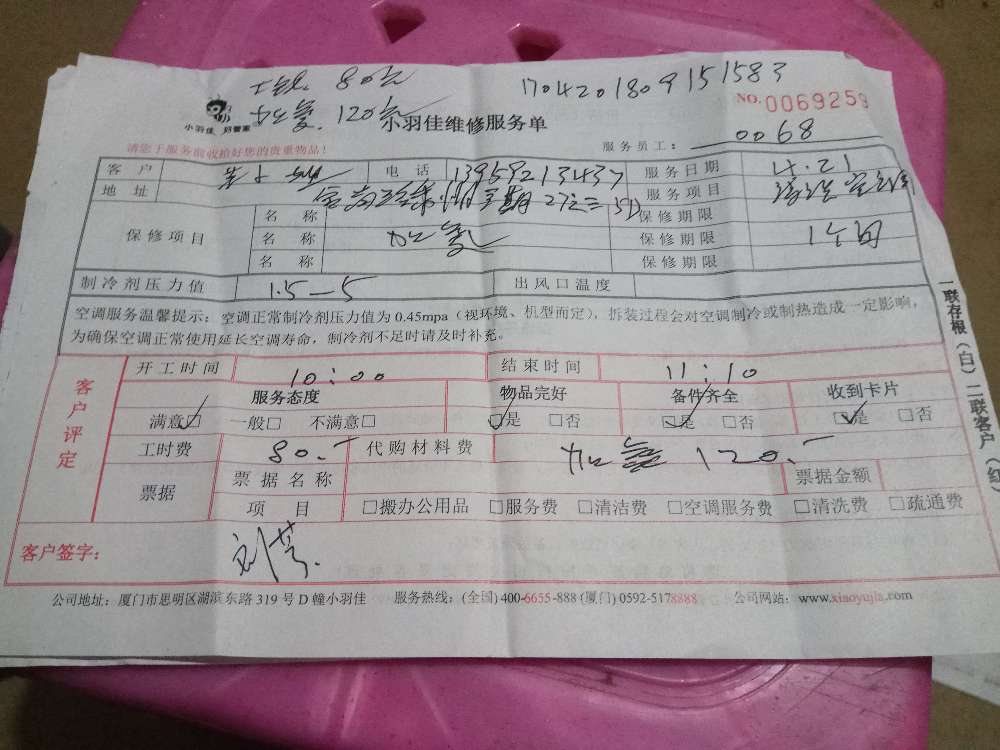 工钱 80元
加氟 120元
170420180915 1583
NO.0069259
小羽佳 好管家
小羽佳维修服务单
请您于服务前收拾好您的贵重物品!
服务员工: 0068
客户 电话 13959213437 服务日期 4.21
地址 服务项目
保修项目 名称 保修期限
名称 加氟 保修期限 1个月
名称 保修期限
制冷剂压力值 1.5—5 出风口温度
空调服务温馨提示:空调正常制冷剂压力值为0.45mpa(视环境、机型而定),拆装过程会对空调制冷或制热造成一定影响,
为确保空调正常使用延长空调寿命,制冷剂不足时请及时补充。
客户评定
开工时间 10:00 结束时间 11:10
服务态度 物品完好 备件齐全 收到卡片
满意□ 一般□ 不满意□ □是 □否 □是 □否 □是 □否
工时费 80.- 代购材料费 加氟 120.-
票据 票据名称 票据金额
项目 □搬办公用品 □服务费 □清洁费 □空调服务费 □清洗费 □疏通费
客户签字: 刘芳
公司地址:厦门市思明区湖滨东路319号D幢小羽佳 服务热线:(全国)400-6655-888(厦门)0592-5178888 公司网站:www.xiaoyujia.com
一联存根(白)二联客户(红)